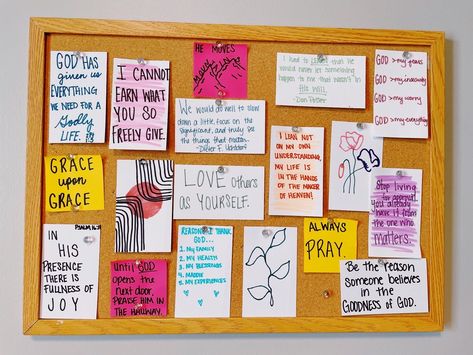 GOD HAS
given us
EVERYTHING
WE NEED FOR A
Godly
LIFE.
I CANNOT
EARN WHAT
YOU SO
FREELY GIVE.
HE MOVES
I had to LEARN that He
would never let something
happen to me that wasn't in
His will.
GOD > my fears
GOD > my insecurity
GOD > my worry
GOD > my everything
We would do well to slow
down a little, focus on the
significant, and truly see
the things that matter.
-Dieter F. Uchtdorf
I LEAN NOT
ON MY OWN
UNDERSTANDING,
MY LIFE IS
IN THE HANDS
OF THE MAKER
OF HEAVEN!
GRACE
upon
GRACE
LOVE others
AS YOURSELF.
Stop living
for approval
You already
have it from
the one who
Matters.
PSALM 16:11
IN
HIS
PRESENCE
THERE IS
FULLNESS OF
JOY
Until GOD
opens the
next door,
PRAISE HIM IN
THE HALLWAY.
REASONS I THANK
GOD...
1. MY FAMILY
2. MY HEALTH
3. MY BLESSINGS
4. MADDIE
5. MY EXPERIENCES
ALWAYS
PRAY.
Be the REASON
someone believes
in the
GOODNESS OF GOD.